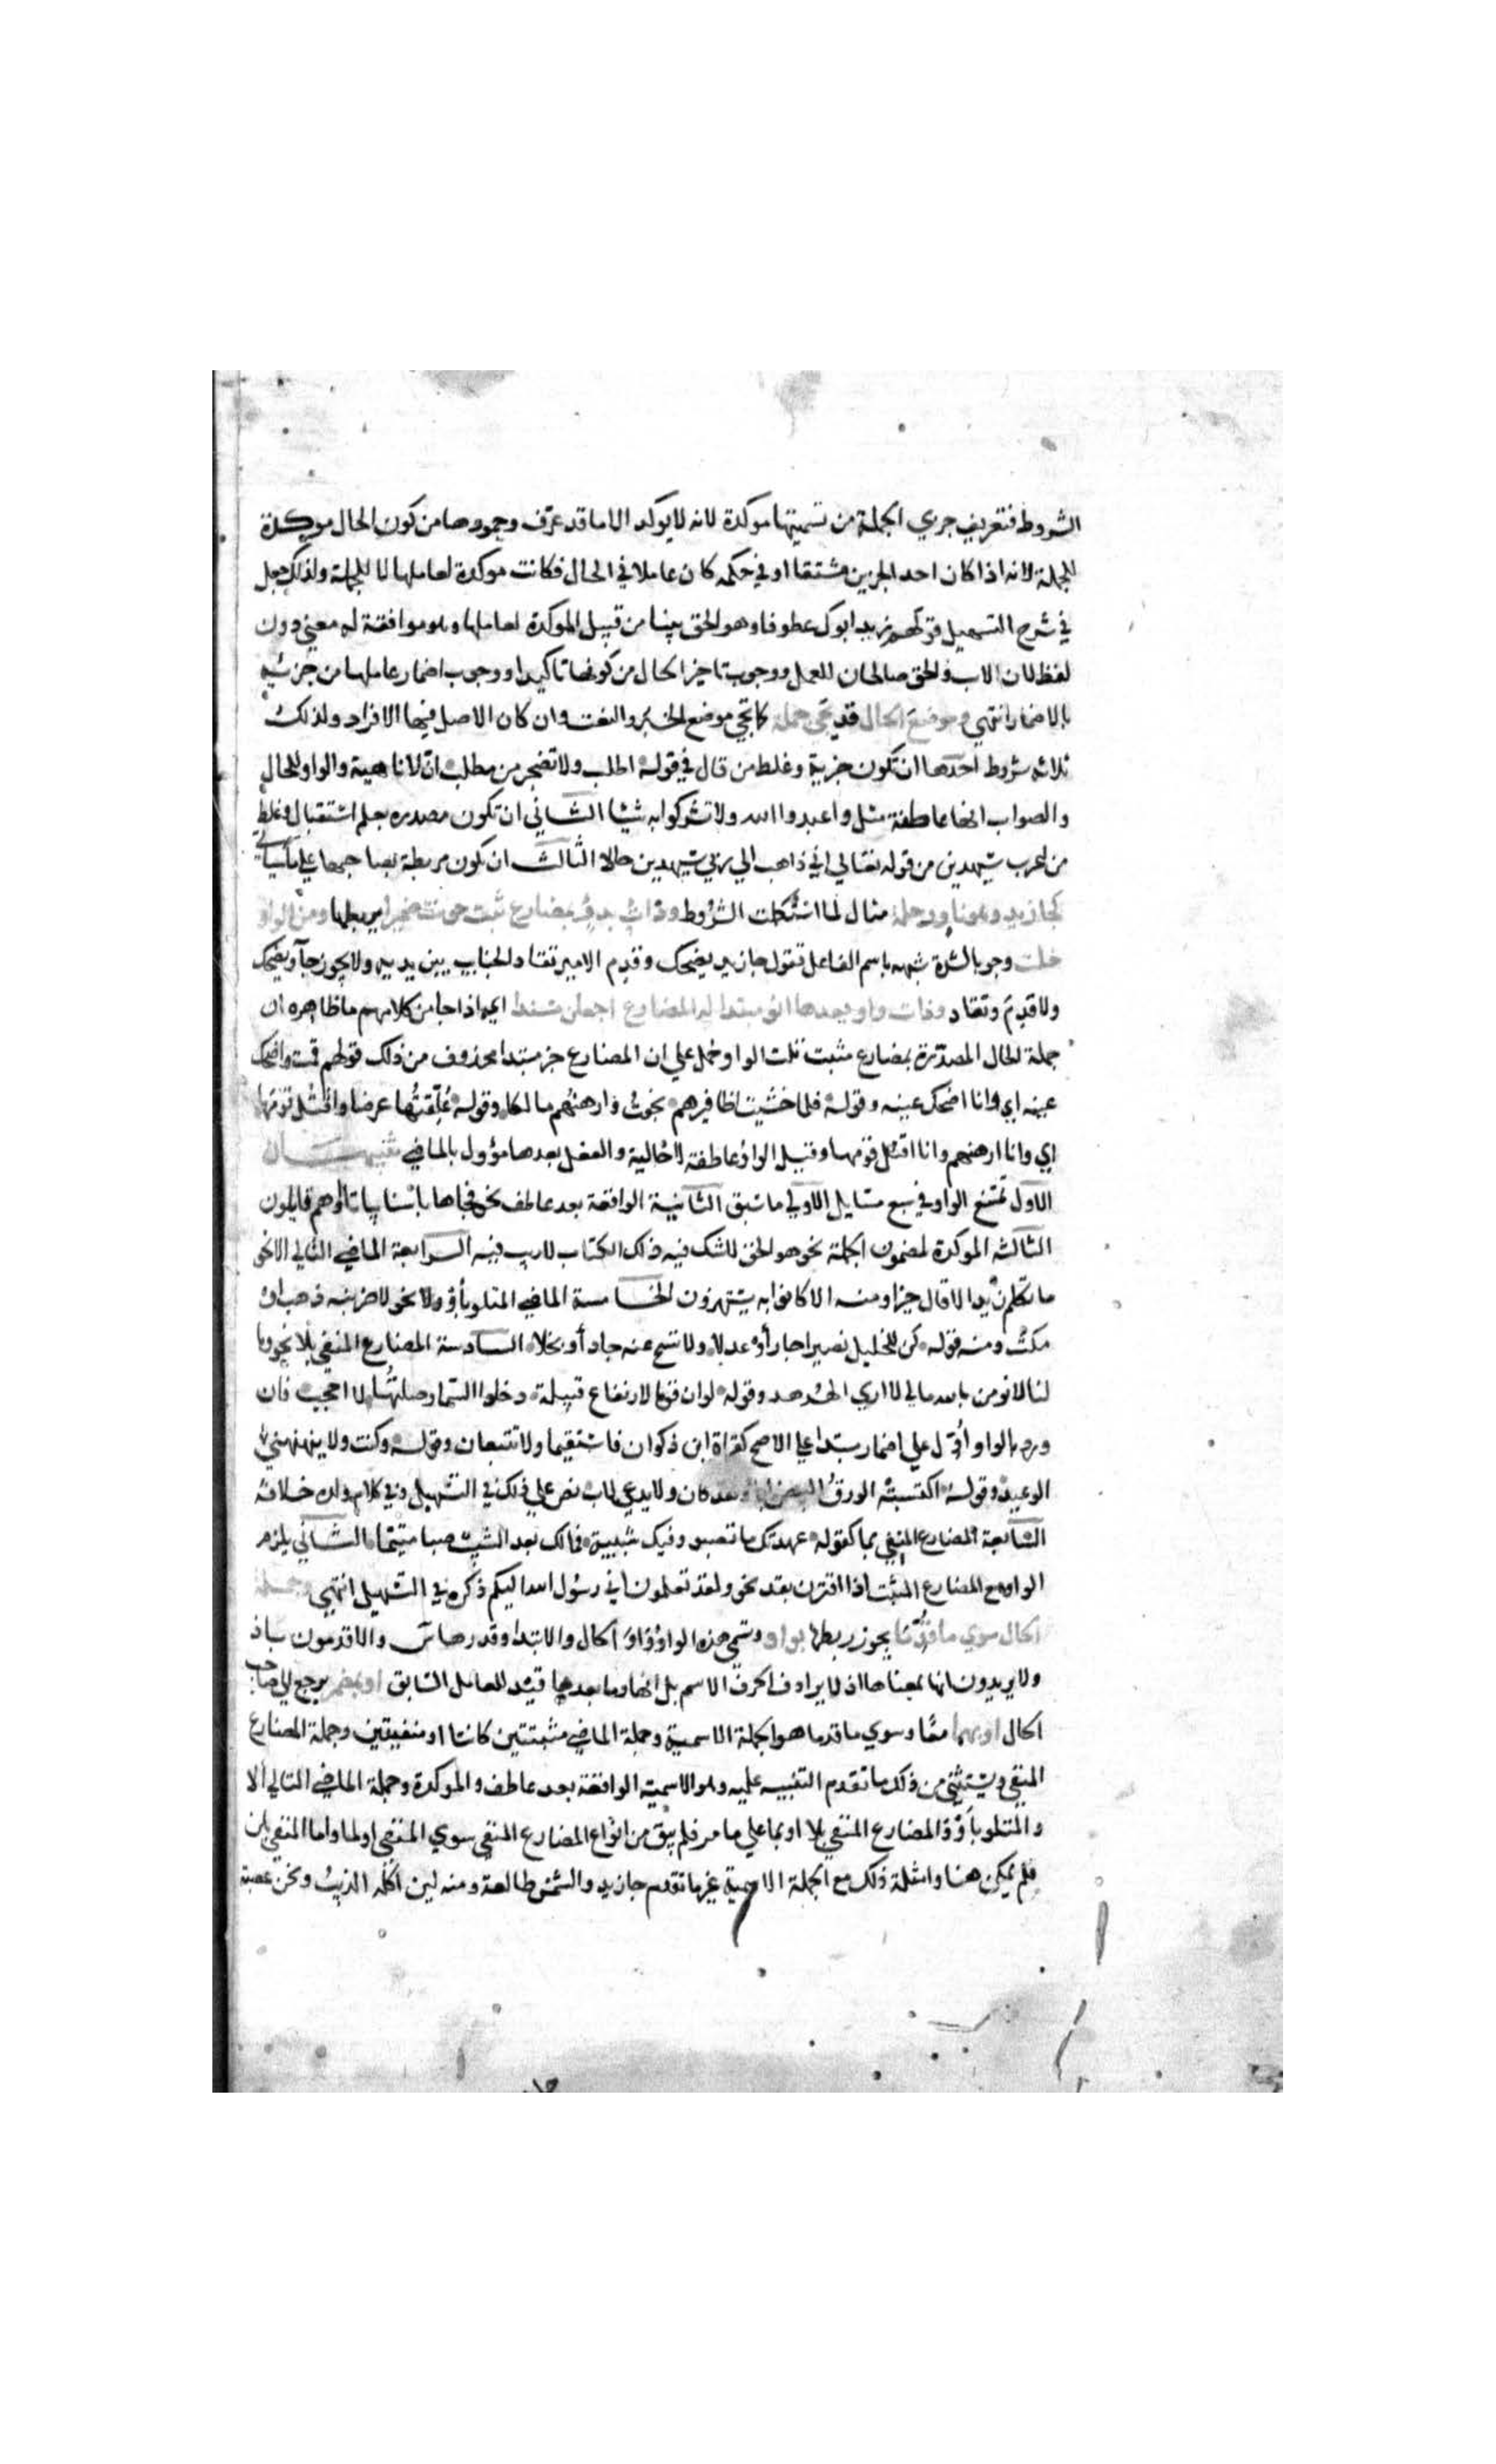 الشروط فتعريف جزءي الجملة من تسميتها موكدة لانه لا يوكد الا ما قد عرف وجمودها من كون الحال موكدة
للجملة لانه اذا كان احد الجزين مشتقا او في حكمه كان عاملا في الحال فكانت موكدة لعاملها لا للجملة ولذلك جعل
في شرح التسهيل قولهم زيد ابوك عطوفا وهو الحق بينا من قبيل الموكدة لعاملها وهو موافقة له معني دون
لفظ لان الاب والحق صالحان للعمل ووجوب تاخير الحال من كونها تاكيدا ووجوب اضمار عاملها من جزئيه
بالاضمار انتهي وموضع الحال قد تجي جملة كما تجي موضع الخبر والنعت وان كان الاصل فيها الافراد ولذلك
ثلاثه شروط احدها ان تكون خبرية وغلط من قال في قوله اطلب ولا تضجر من مطلب ان لا ناهية والواو للحال
والصواب انها عاطفة مثل واعبدوا الله ولا تشركوا به شيئا الثاني ان تكون مصدره بعلم استقبال وغلط
من اعرب سيهدين من قوله تعالي اني ذاهب الي ربي سيهدين حالا الثالث ان تكون مربطة بصاحبها علي ما سياتي
كجا زيد وهو ناو رحله مثال لما استكملت الشروط وذات بدء بمضارع ثبت حوت ضميرا يربطها ومن الواو
خلت وجوبا لشدة شبهه باسم الفاعل تقول جا زيد يضحك وقدم الامير تقاد الجنايب بين يديه ولا يجوز جآ ويضحك
ولا قدم وتقاد وذات واو بعدها انو مبتدا له المضارع اجعلن مسندا اي اذا جا من كلامهم ما ظاهره ان
جملة الحال المصدرة بمضارع مثبت تلت الواو حمل علي ان المضارع خبر مبتدا محذوف من ذلك قولهم قمت واصك
عينه اي وانا اصك عينه وقوله فلما خشيت اظافيرهم نجوت وارهنهم مالكا وقوله عُلّقتُها عرضا واقتل قومها
اي وانا ارهنهم وانا اقتل قومها وقيل الواو عاطفة لا حالية والفعل بعدها مؤول بالماضي تنبيهان
الاول تمتنع الواو في سبع مسايل الاولي ما سبق الثانية الواقعة بعد عاطف نحو فجاها باسنا بياتا او هم قايلون
الثالثه الموكدة لمضمون الجملة نحو هو الحق لا شك فيه ذلك الكتاب لا ريب فيه الرابعة الماضي التالي الا نحو
ما تكلم زيد الا قال خيرا ومنه الا كانوا به يستهزون الخامسة الماضي المتلو بأو ولا نحو لاضربنه ذهب او
مكث ومنه قوله كن للخليل نصيرا جار أو عدلا ولا تشح عنه جاد أو بخلا السادسة المضارع المنفي بلا نحو وما
لنا لا نومن بالله مالي لا اري الهدهد وقوله لو ان قوما لارتفاع قبيلة دخلوا السما دخلتُها لا احجب فان
ورد بالواو أُوّل علي اضمار مبتدا علي الاصح كقراة ابن ذكوان فاستقيما ولا تتبعان وقوله وكنت ولا ينهنهني
الوعيد وقوله اكسبته الورق البيض ابا ولقد كان ولا يدعي لاب نص علي ذلك في التسهيل وفي كلام ولده خلافه
السابعة المضارع المنفي بما كقوله عهدتك ما تصبو وفيك شبيبة فما لك بعد الشيب صبا متيما الثاني يلزم
الواو مع المضارع المثبت اذا اقترن بقد نحو ولقد تعلمون اني رسول الله اليكم ذكره في التسهيل انتهي وجملة
الحال سوي ما قدما يجوز ربطها بواو وتسمي هذه الواو واو الحال والابتدا وقدرها س والاقدمون باذ
ولا يريدون انها بمعناها اذ لا يرادف الحرف الاسم بل انها وما بعدها قيد للعامل السابق او بمضمر يرجع الي صاحب
الحال او بهما معًا وسوي ما قدما هو الجملة الاسمية وجملة الماضي مثبتتين كانتا او منفيتين وجملة المضارع
المنفي ويستثني من ذلك ما تقدم التنبيه عليه وهو الاسمية الواقعة بعد عاطف والموكدة وجملة الماضي التالي الا
والمتلو بأو والمضارع المنفي بلا او بما علي ما مر فلم يبق من انواع المضارع المنفي سوي المنفي او لما واما المنفي بلن
فلم يمكن هنا وامثلة ذلك مع الجملة الاسمية غير ما تقدم جا زيد والشمس طالعة ومنه لين اكله الذيب ونحن عصبة